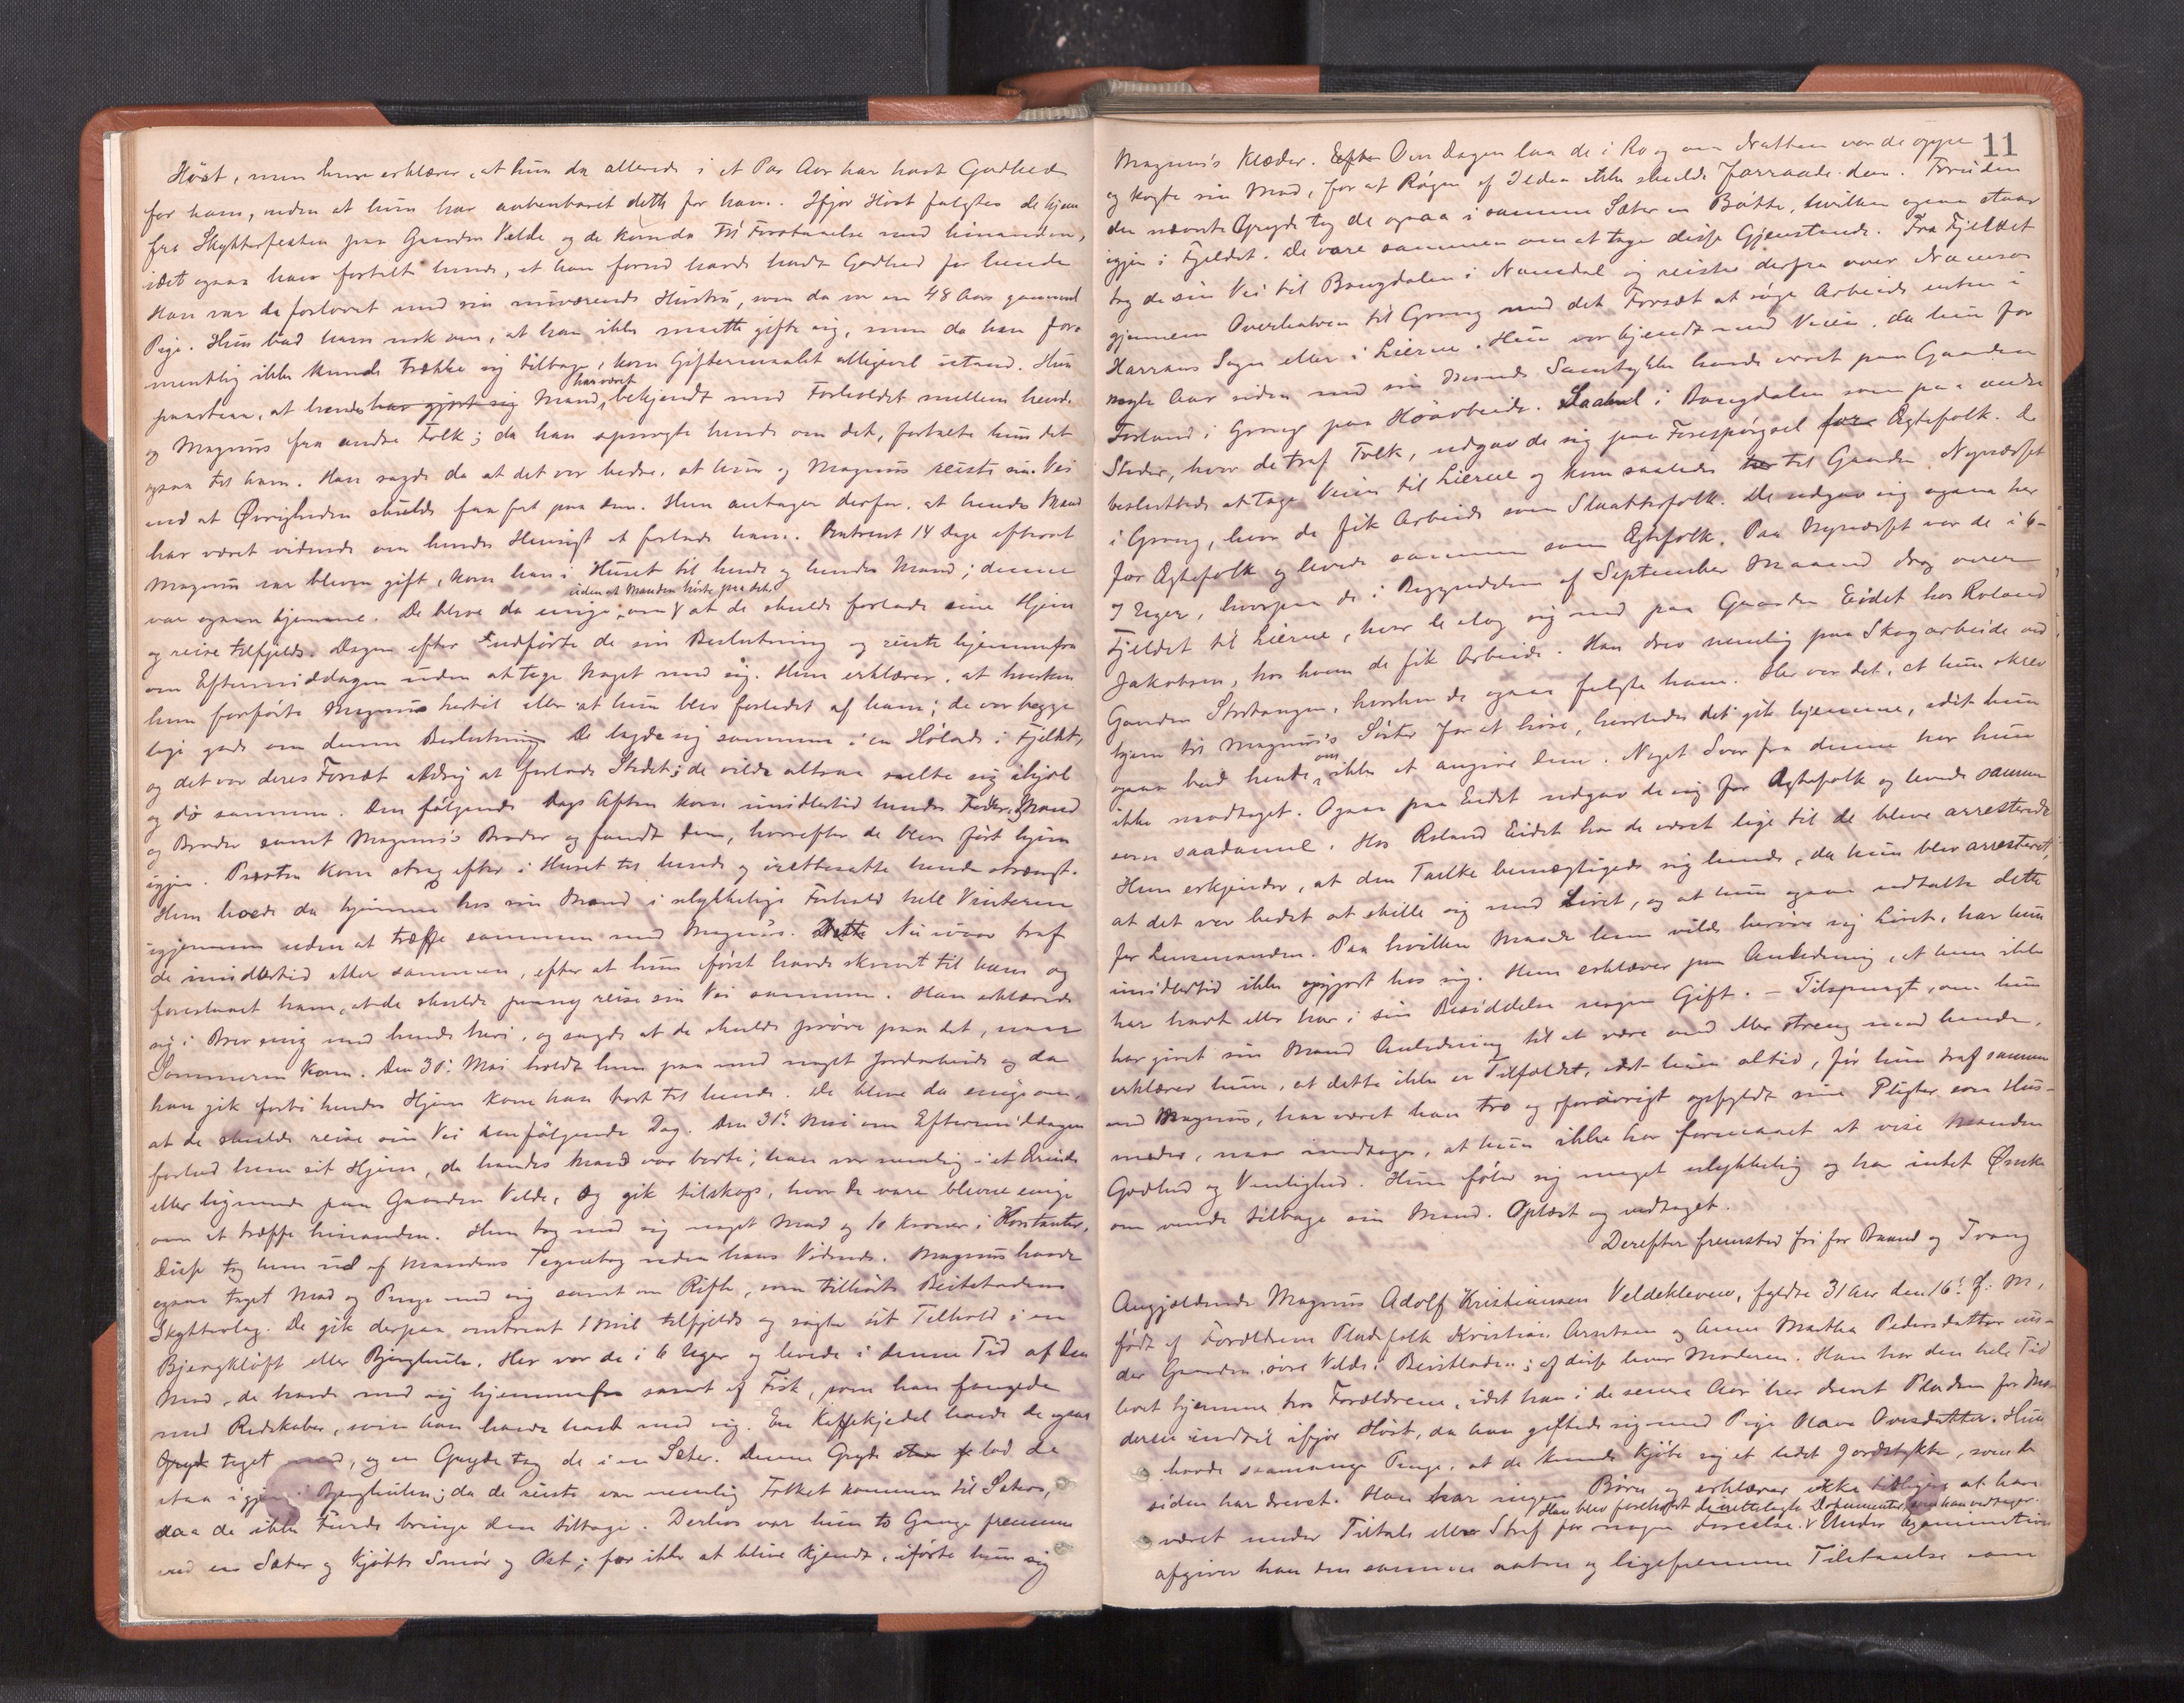 Höst, men hun erklærer, at hun da allerede i et Par Aar har havt Godhed
for ham, uden at hun har aabenbaret dette for ham. Ifjor Höst fulgtes de hjem
fra Skytterfesten paa Gaarden Velde og de kom da til Forstaaelse med hinanden,
idet ogsaa han fortalte hende, at han forud havde havt Godhed for hende
Han var da forlovet med sin nuværende Hustru, som da var en 48 Aar gammel
Pige. Hun bad ham nok om, at han ikke maatte gifte sig, men da han for-
mentlig ikke kunde trække sig tilbage, kom Giftermaalet alligevel istand. Hun
paastaar, at hendes har gjort sig Mand har været bekjendt med Forholdet mellem hende
og Magnus fra andre Folk; da han spurgte hende om det, fortalte hun det
ogsaa til ham. Han sagde da at det var bedre, at hun og Magnus reiste sin Vei
end at Øvrigheden skulde faa fat paa dem. Hun antager derfor, at hendes Mand
har været vidende om hendes Hensigt at forlade ham. Omtrent 14 Dage efterat
Magnus var bleven gift, kom han i Huset til hende og hendes Mand; denne
var ogsaa hjemme. De bleve da enige, uden at Manden hörte paa det, om at de skulde forlade sine Hjem
og reise tilfjelds. Dagen efter udförte de sin Beslutning og reiste hjemmefra
om Eftermiddagen uden at tage noget med sig. Hun erklærer, at hverken
hun forförte Magnus hertil eller at hun blev forledet af ham; de var begge
lige gode om denne Beslutning. De lagde sig sammen i en Hölade i Fjeldet,
og det var deres Forsæt aldrig at forlade Stedet; de vilde altsaa sulte sig ihjel
og dö sammen. Den fölgende Dags Aften kom imidlertid hendes Fader, Mand
og Broder samt Magnus's Broder og fandt dem, hvorefter de blev fört hjem
igjen. Præsten kom strax efter i Huset til hende og irettesatte hende strængt.
Hun levede da hjemme hos sin Mand i ulykkelige Forhold hele Vinteren
igjennem uden at træffe sammen med Magnus. Dette Nu ivaar traf
de imidlertid atter sammen, efter at hun först havde skrevet til ham og
foreslaaet ham, at de skulde paany reise sin Vei sammen. Han erklærede
sig i Brev enig med hende heri, og sagde at de skulde pröve paa det, naar
Sommeren kom. Den 30. Mai holdt hun paa med noget Jordarbeide og da
han gik forbi hendes Hjem kom han bort til hende. De bleve da enige om,
at de skulde reise sin Vei den fölgende Dag. Den 31. Mai om Eftermiddagen
forlod hun sit Hjem, da hendes Mand var borte; han var nemlig i et Ærinde
eller lignende paa Gaarden Velde, og gik tilskogs, hvor de vare blevne enige
om at træffe hinanden. Hun tog med sig noget Mad og 10 Kroner i Kontanter,
Disse tog hun ud af Mandens Tegnebog uden hans Vidende. Magnus havde
ogsaa taget Mad og Penge med sig samt en Rifle, som tilhörte Beitstadens
Skytterlag. De gik derpaa omtrent 1 Mil tilfjelds og sögte sit Tilhold i en
Bjergklöft eller Bjerghule. Her var de i 6 Uger og levede i denne Tid af den
Mad, de havde med sig hjemmefra samt af Fisk, som han fangede
med Redskaber, som han havde havt med sig. En Kaffekjedel havde de ogsaa
Gryde taget med, og en Gryde tog de i en Sæter. Denne Gryde lod de
staa igjen i Bjerghulen; da de reiste var nemlig Folket kommen til Sæters,
saa de ikke turde bringe den tilbage. Derhos var hun to Gange fremme
ved en Sæter og kjöbte Smör og Ost; for ikke at blive kjendt, iförte hun sig
11
Magnus's Klæder. Efter Om Dagen laa de i Ro og om Natten var de oppe
og kogte sin Mad, for at Rögen af Ilden ikke skulde forraade dem. Foruden
den nævnte Gryde tog de ogsaa i samme Sæter en Bötte, hvilken ogsaa staar
igjen i Fjeldet. De vare sammen om at tage disse Gjenstande. Fra Fjeldet
tog de sin Vei til Bangdalen i Namdal og reiste derfra over Namsos
gjennem Overhalven til Grong med det Forsæt at söge Arbeide enten i
Harrans Sogn eller i Lierne. Hun var kjendt med Veien, da hun for
nogle Aar siden med sin Mands Samtykke havde været paa Gaarden
Fosland i Grong paa Höarbeide. Saavel i Bangdalen som paa andre
Steder, hvor de traf Folk, udgav de sig paa Forespörgsel for Ægtefolk. De
besluttede at tage Veien til Lierne og kom saaledes til Gaarden Nynæsset
i Grong, hvor de fik Arbeide som Slaattefolk. De udgav sig ogsaa her
for Ægtefolk og levede sammen som Ægtefolk. Paa Nynæsset var de i 6-
7 Uger, hvorpaa de i Begyndelsen af September Maaned drog over
Fjeldet til Lierne, hvor de slog sig ned paa Gaarden Eidet hos Roland
Jakobsen, hos hvem de fik Arbeide. Han drev nemlig paa Skogarbeide ved
Gaarden Stortangen, hvorhen de ogsaa fulgte ham. Her var det, at hun skrev
hjem til Magnus's Söster for at höre, hvorledes det gik hjemme, idet hun
ogsaa bad hende om ikke at angive dem. Noget Svar fra denne har hun
ikke modtaget. Ogsaa paa Eidet udgav de sig for Ægtefolk og levede sammen
som saadanne. Hos Roland Eidet har de været lige til de bleve arresterede
Hun erkjender, at den Tanke bemægtigede sig hende, da hun blev arresteret,
at det var bedst at skille sig med Livet, og at hun ogsaa udtalte dette
for Lensmanden. Paa hvilken Maade hun vilde beröve sig Livet, har hun
imidlertid ikke opgjort hos sig. Hun erklærer paa Anledning, at hun ikke
har havt eller har i sin Besiddelse nogen Gift. – Tilspurgt, om hun
har givet sin Mand Anledning til at være ond eller streng mod hende,
erklærer hun, at dette ikke er Tilfældet, idet hun altid, för hun traf sammen
med Magnus, har været ham tro og forövrigt opfyldt sine Pligter som Hus-
moder, naar undtages, at hun ikke har formaaet at vise Manden
Godhed og Venlighed. Hun föler sig meget ulykkelig og har intet Ønske
om vende tilbage sin Mand. Oplæst og vedtaget.
Derefter fremstod fri for Baand og Tvang
Angjældende Magnus Adolf Kristiansen Veldekleven, fyldte 31 Aar den 16. d. M.,
födt af Forældrene Pladsfolk Kristian Arntsen og Anne Martha Pedersdatter un-
der Gaarden övre Velde i Beitstaden; af disse lever Moderen. Han har den hele Tid
levet hjemme hos Forældrene, idet han i de senere Aar har drevet Pladsen for Mo-
deren indtil ifjor Höst, da han giftede sig med Pige Olava Ovesdatter. Hun
havde saamange Penge, at de kunde kjöbe sig et lidet Jordstykke, som de
siden har drevet. Han har ingen Börn og erklærer ikke tidligere at have
været under Tiltale eller Straf for nogen Forseelse. Han blev foreholdt de irettelagte Dokumenter, som han vedtager. Under Examination
afgiver han den samme aabne og ligefremme Tilstaaelse som